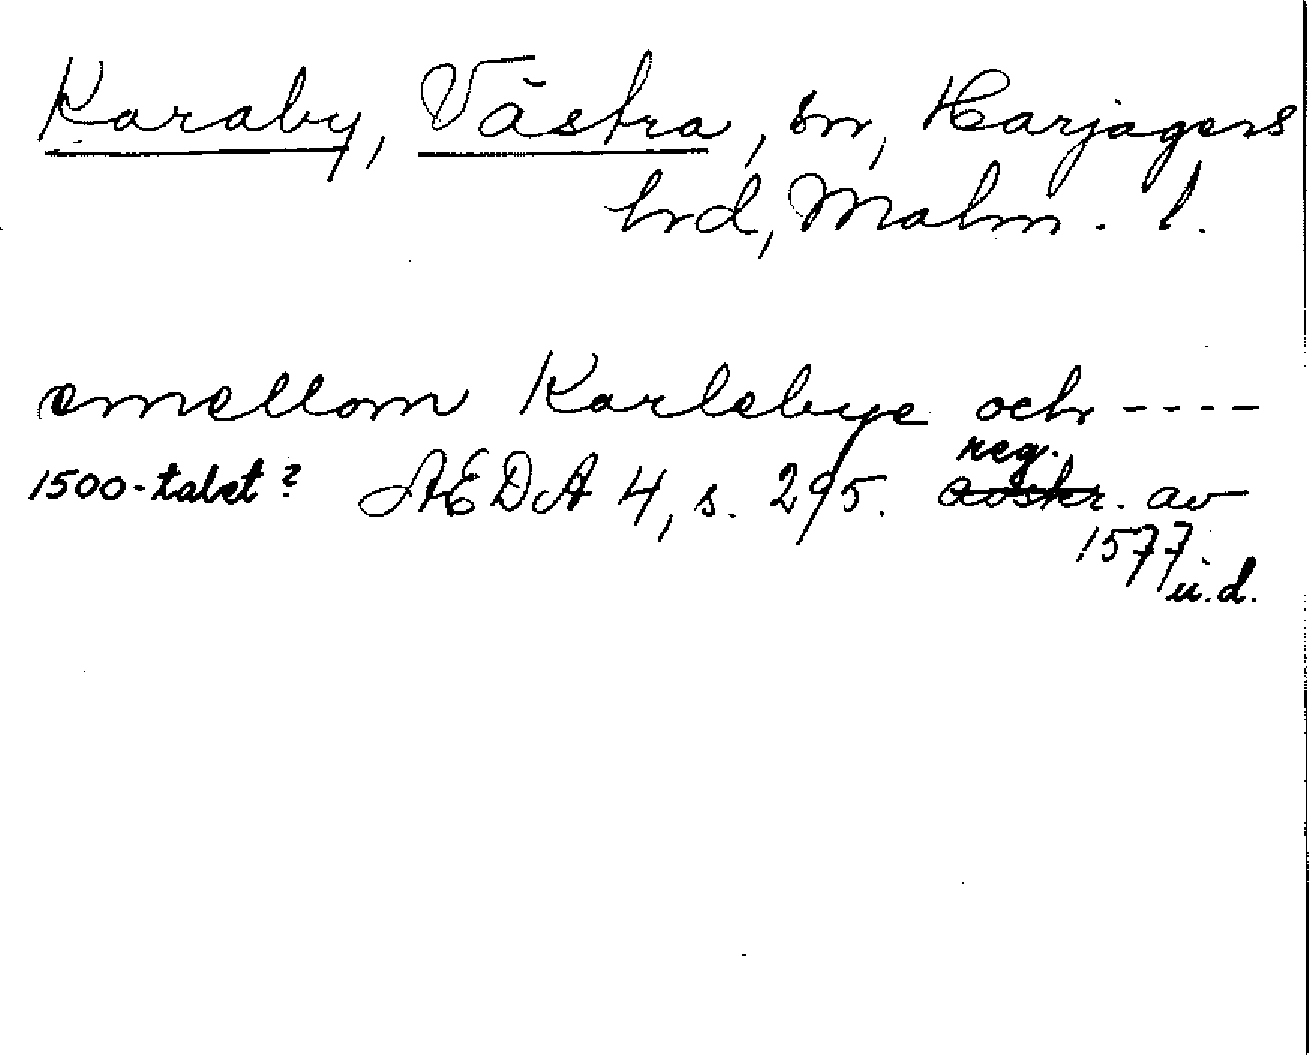 Karaby, Västra, sn, Harjagers
hrd, Malm. l.
emellom Karlebye och ----
1500-talet? AEDA 4, s. 295. reg. avskr. av
1577 u.d.